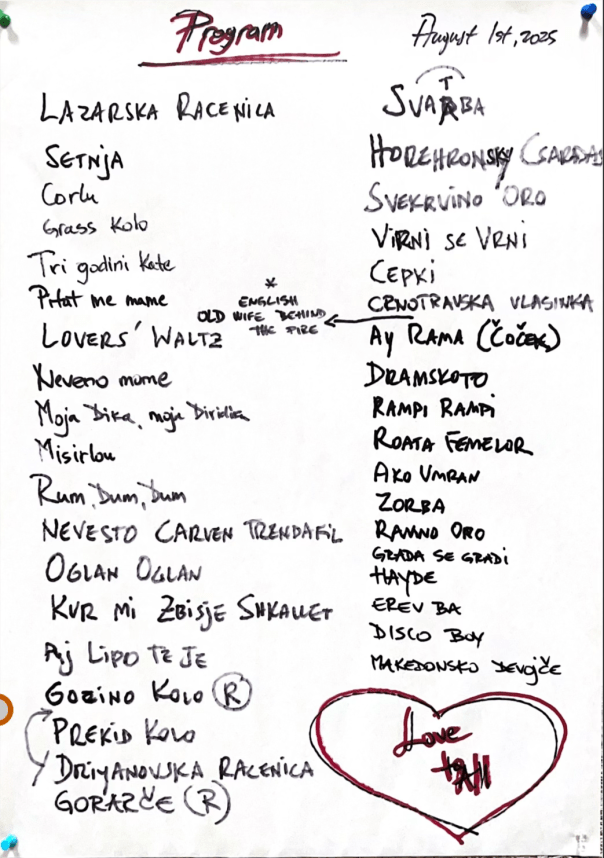 Program
August 1st, 2025
LAZARSKA RACENICA
SETNJA
Corlu
Grass Kolo
Tri godini Kate
Pitat me mame
LOVERS' WALTZ
Neveno mome
Moja Dika, moja Diridika
Misirlou
Rum, Dum, Dum
NEVESTO CARVEN TRENDAFIL
OGLAN OGLAN
KUR MI ZBISJE SHKALLET
Aj LIPO TE JE
GOZINO KOLO (R)
PREKID KOLO
DRIYANOVSKA RACENICA
GORARČE (R)
SVATBA
HOREHRONSKY CSARDAS
SVEKRVINO ORO
VIRNI SE VRNI
CEPKI
CRNOTRAVSKA VLASINKA
*
ENGLISH
OLD WIFE BEHIND
THE FIRE
AY RAMA (ČOČEK)
DRAMSKOTO
RAMPI RAMPI
ROATA FEMELOR
AKO UMRAM
ZORBA
RAMNO ORO
GRADA SE GRADI
HAYDE
EREV BA
DISCO BOY
MAKEDONSKO DEVOJČE
Love
to All